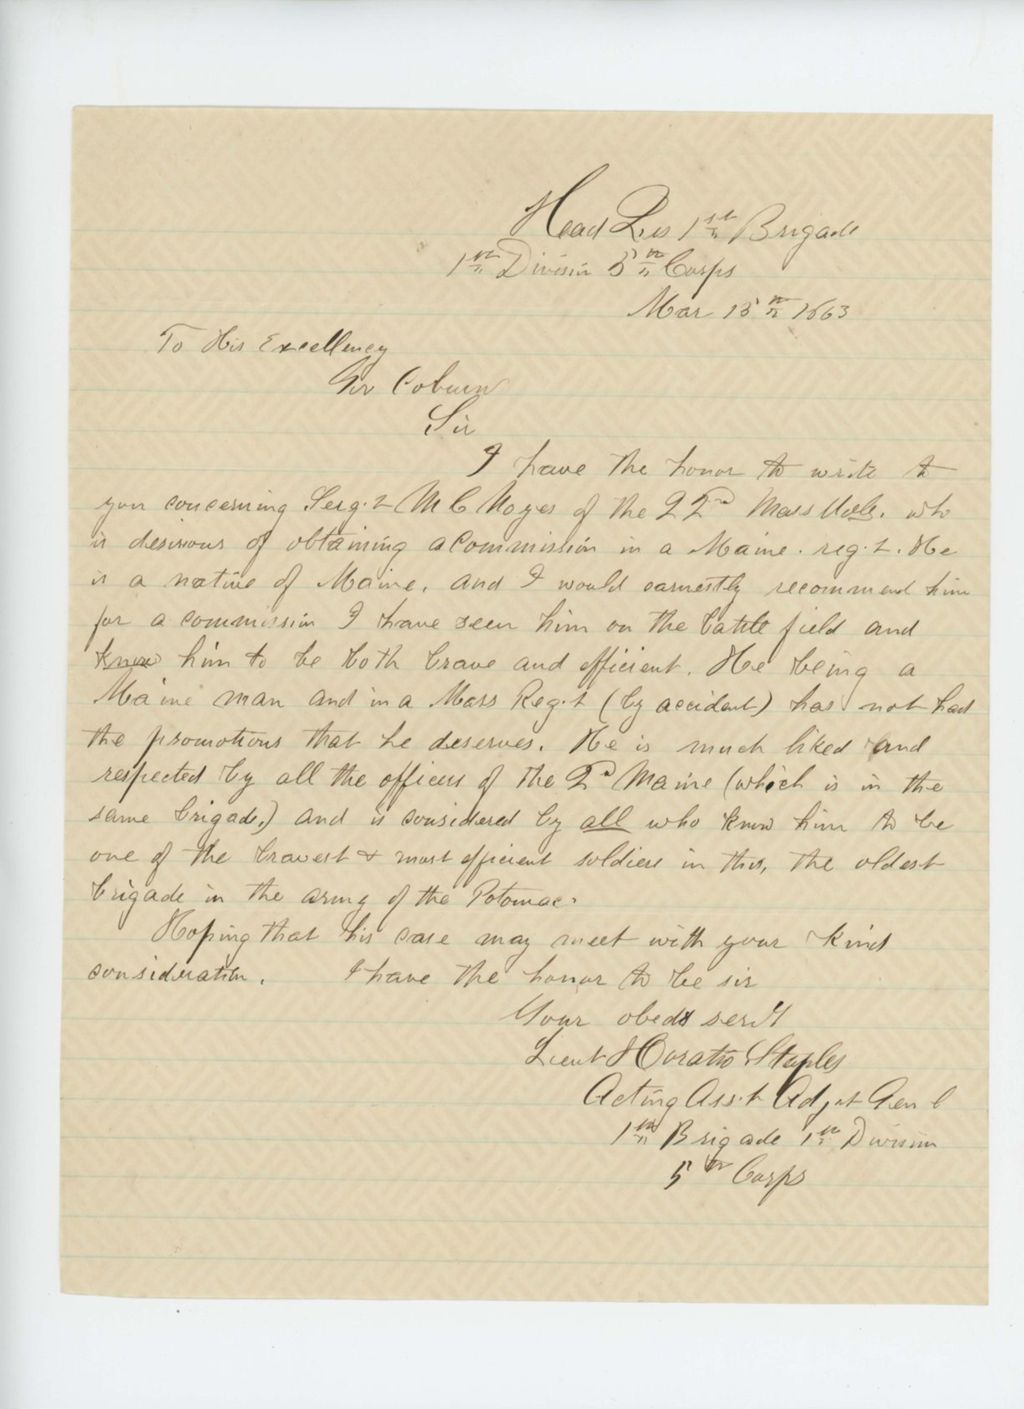 Head Qrs 1st Brigade
1st Division 5th Corps
Mar 15th 1863
To His Excellency
Gov Coburn
Sir
I have the honor to write to
you concerning Serg.t M C Noyes of the 22nd Mass Vols. who
is desirous of obtaining a commission in a Maine. reg.t. He
is a native of Maine, and I would earnestly recommend him
for a commission I have seen him on the battle field and
know him to be both brave and efficient. He being a
Maine man and in a Mass Reg.t (by accident) has not had
the promotions that he deserves. He is much liked and
respected by all the officers of the 2d Maine (which is in the
same brigade,) and is considered by all who know him to be
one of the bravest & most efficient soldiers in this, the oldest
brigade in the army of the Potomac.
Hoping that his case may meet with your kind
consideration. I have the honor to be sir
Your obedt serv't
Lieut Horatio Staples
Acting Ass.t Adj.t Gen l
1st Brigade 1st Division
5th Corps